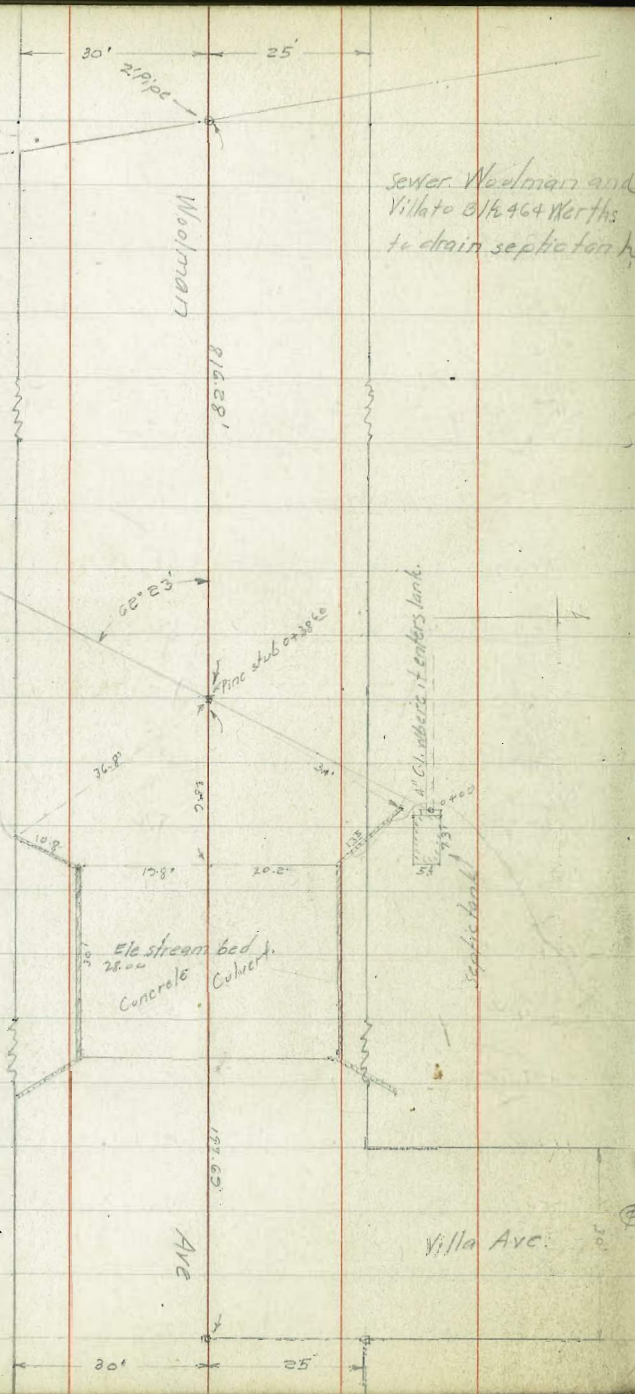 30'
25'
2" Pipe
sewer. Woolman and
Villa to Blk 464 Werths
to drain septic tank
Woolman
816.28'
62° 23'
Pine stub 0+38.60
4" C.I. where it enters tank.
36.8'
34'
38.6
0+00
10.8
13.5
7.3'
5'
19.8'
20.2'
Septic tank
30'
Ele stream bed
28.00
Concrete Culvert.
197.65
Villa Ave.
Ave
30'
25'